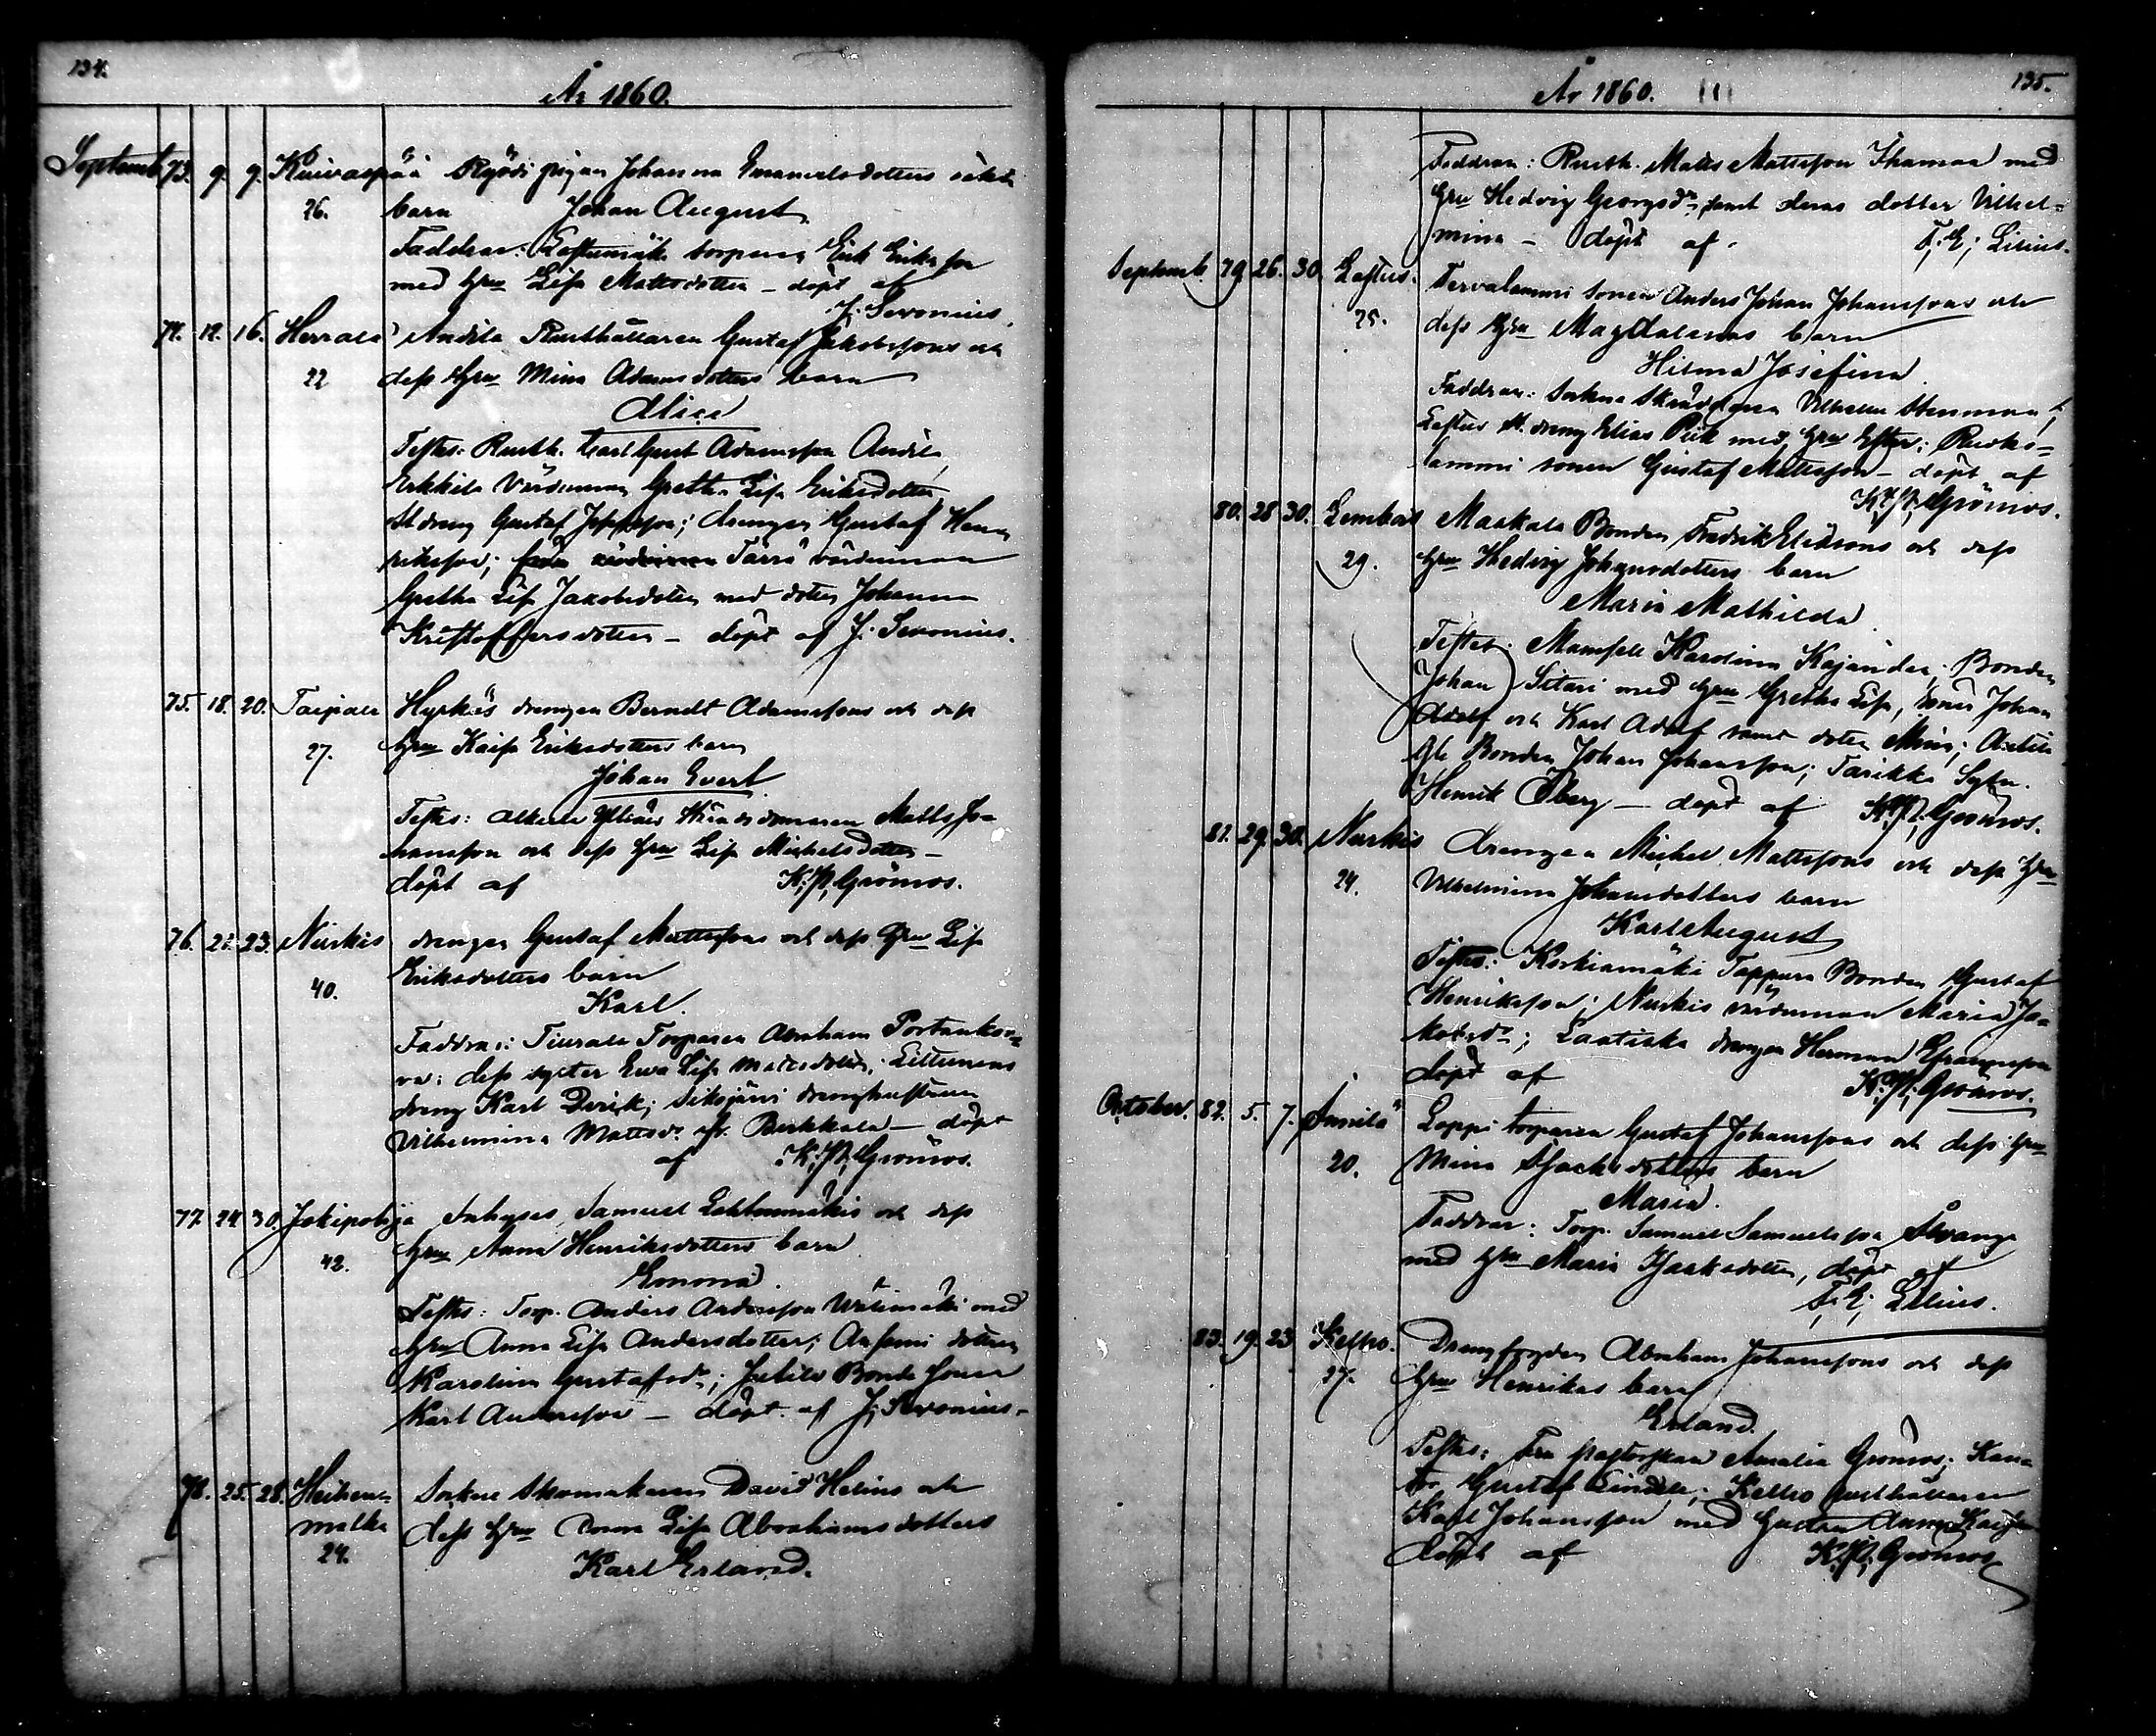 134.
År 1860.
Septemb. 73. 9. 9. Kuivaspää Ryödi pigan Johanna Emanuelsdotters oäkta
26. barn Johan August
Faddrar: torparen Erik Eriksson
med hru Lisa Mattsdotter – döpt af
J. Sevonius.
74. 12. 16. Herrala Andila Rusthållaren Gustaf Jakobssons och
22 dess hru Mina Adamsdotters barn
Alina
Testes: Rusth. Carl Gust Adamsson Andila
Erkkila Värdinnan Gretha Lisa Eriksdotter
St dreng Gustaf Josefsson; drengen Gustaf Hen
riksson; Tarra värdinnan
Gretha Lisa Jakobsdotter med dotter Johanna
Kristoffersdotter – döpt af J. Sevonius.
75. 18. 20. Taipale Hyrkäs drengen Berndt Adamssons och dess
27. hru Kaisa Eriksdotters barn
Johan Evert
Testes: Matts Jo-
hansson och dess hru Lisa Michelsdotter –
döpt af K. A. Grönroos.
76. 21. 23. Nuikis drengen Gustaf Mattssons och dess hru Lisa
40. Eriksdotters barn
Karl.
Faddrar: Tiurala Torparen Abraham Portankor-
va; dess syster Ewa Lisa Mattsdotter;
dreng Karl Derik; Siksjärvi drenghustrun
Vilhelmina Mattsdr. fr. Birkkala – döpt
af K. A. Grönroos.
77. 24 30. Jokipohja Inhyses Samuel Lehtonmäkis och dess
42. hru Anna Henriksdotters barn
Emma.
Testes: Torp. Anders Andersson Wälimäki med
hru Anna Lisa Andersdotter; Ansomi dottren
Karolina Gustafsdr; Jutila Bonde sonen
Karl Andersson – döpt af J. Sevonius.
78. 25. 28. Heiken- Sockne Skomakaren David Helins och
malka dess hru Anna Lisa Abrahamsdotters
24. Karl Erland.
135.
År 1860.
Faddrar: Rusth. Matts Mattsson Ihamaa med
hru Hedvig Georgsdr samt deras dotter Vilhel-
mina – döpt af F. E. Lilius.
Septemb. 79. 26. 30. Loftus. Tervalammi sonen Anders Johan Johanssons och
25. dess hru Magdalenas barn
Hilma Josefina.
Faddrar: Sockne Skräddaren Vilhelm Stenman;
Loftus St. dreng Elias Piik med hru Ester; Ruoko-
lammi sonen Gustaf Mattsson – döpt af
K. A. Grönroos.
80. 28 30. Lembois Maskala Bonden Fredrik Eliassons och dess
29. hru Hedvig Johansdotters barn
Maria Mathilda
Testes: Mamsell Karolina Kajander; Bonden
Johan Sitari med hru Gretha Lisa, söner Johan
Adolf och Karl Adolf samt dotter Mina;
Bonden Johan Johansson;
Henrik Öberg – döpt af K. A. Grönroos.
81. 29. 30. Nuikis drengen Michel Mattssons och dess hru
24. Vilhelmina Johansdotters barn
Karl August
Testes: Korkiamäki Tappura Bonden Gustaf
Henriksson; Nuikis värdinnan Maria Ja-
kobsdr; Laatiska drengen Herman Efraimsson
döpt af K. A. Grönroos.
October. 82. 5. 7. Sumila Loppi torparen Gustaf Johanssons och dess hru
20. Mina Isacksdotters barn
Maria.
Faddrar: Torp. Samuel Samuelsson
med hru Maria Isaksdotter, döpt af
F. E. Lilius.
83. 19. 23 Kelho. Drengfogden Abraham Johanssons och dess
27. hru Henrikas barn
Erland.
Testes: Fru pastorskan Amalia Grönroos; Kan-
tor Gustaf Lindell; Kelho rusthållaren
Karl Johansson med Gustava Anna Kaisa
döpt af K. A. Grönroos